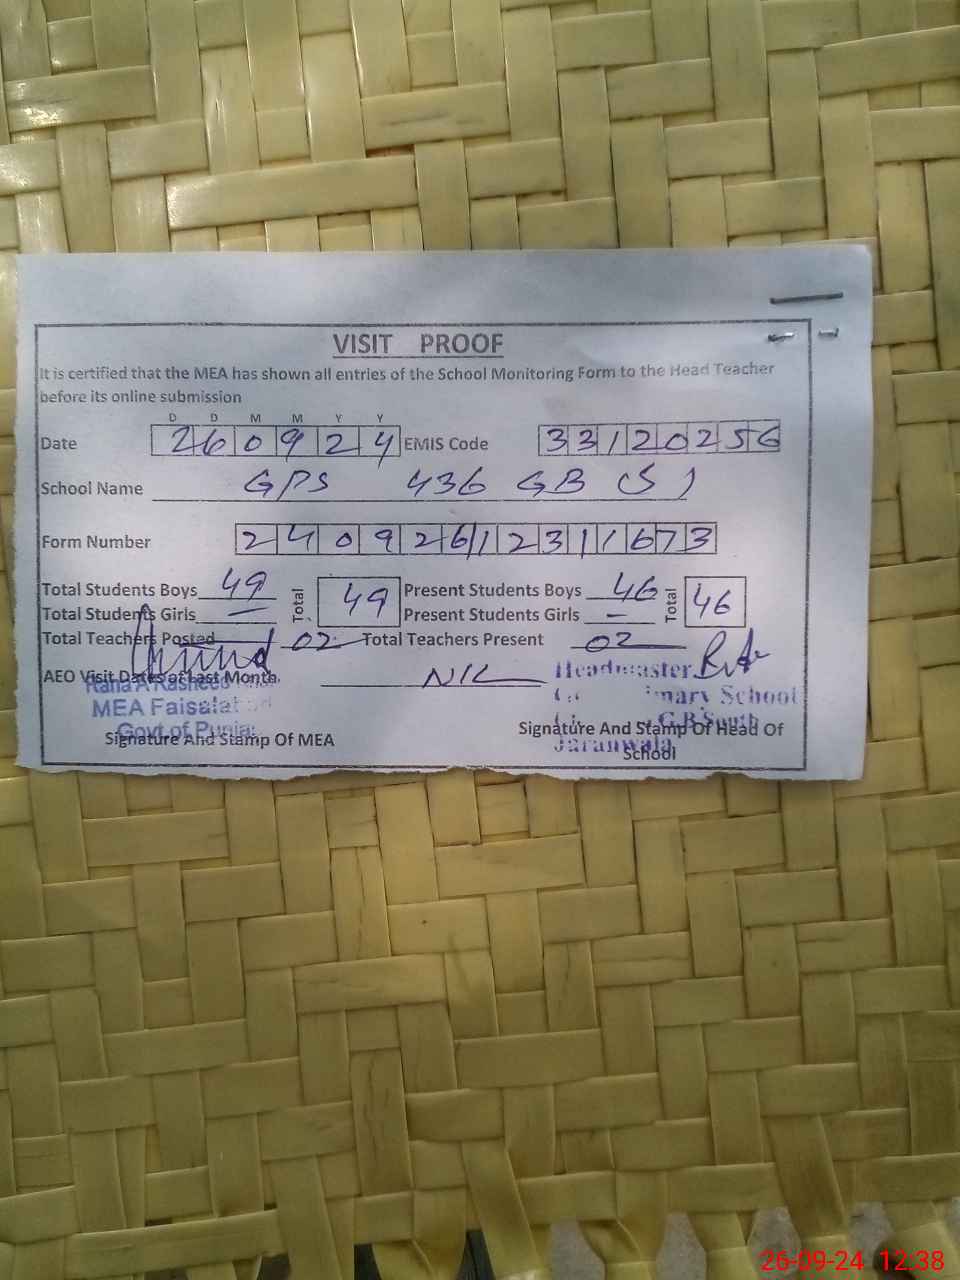 VISIT PROOF
It is certified that the MEA has shown all entries of the School Monitoring Form to the Head Teacher
before its online submission
D D M M Y Y
Date 260924 EMIS Code 33120256
School Name GPS 436 GB (S)
Form Number 24092612311673
Total Students Boys 49 Total 49 Present Students Boys 46 Total 46
Total Students Girls — Present Students Girls —
Total Teachers Posted 02 Total Teachers Present 02
AEO Visit Dates of Last Month NIL
Rana A Rasheed
MEA Faisalabad
Govt of Punjab
Signature And Stamp Of MEA
Headmaster
School
G.B South
Jaranwala
Signature And Stamp Of Head Of
School
26-09-24 12:38